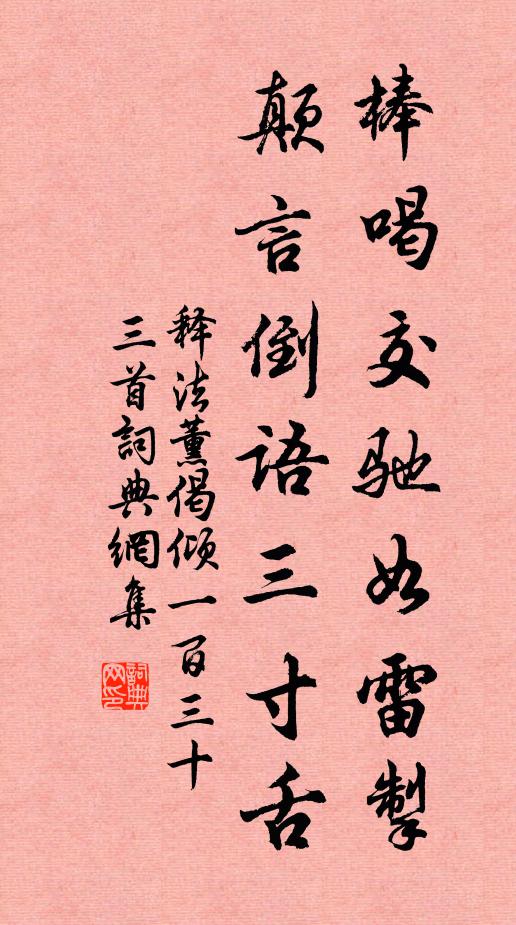 棒喝交驰如雷掣
颠言倒语三寸舌
释法薰偈倾一百三十
三首詞典網集
詞典網印